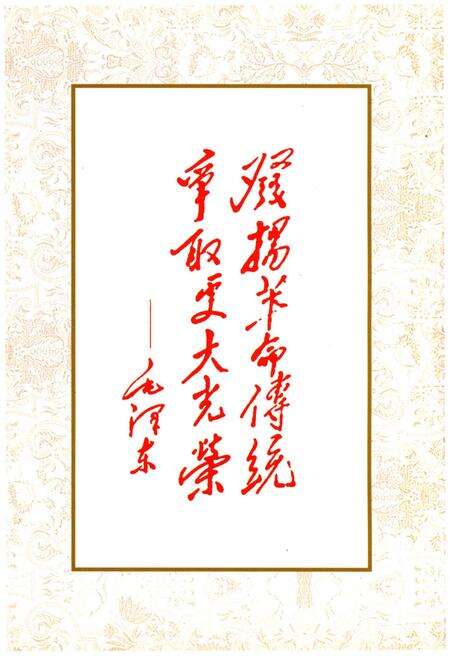 發揚革命傳統
爭取更大光榮
——毛泽东